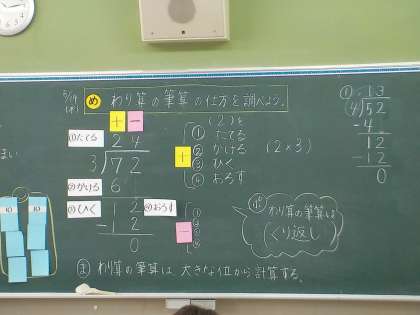 5/19
(木)
め わり算の筆算の仕方を調べよう。
十 一
①たてる 24
3)72
②かける 6
③ひく 12 ④おろす
-12
0
十
① たてる
② かける
③ ひく
④ おろす
(2×3)
一
①
②
③
④
① 13
④)52
-4
12
-12
0
わり算の筆算は
くり返し
ま わり算の筆算は 大きな位から計算する。
まい
10 10